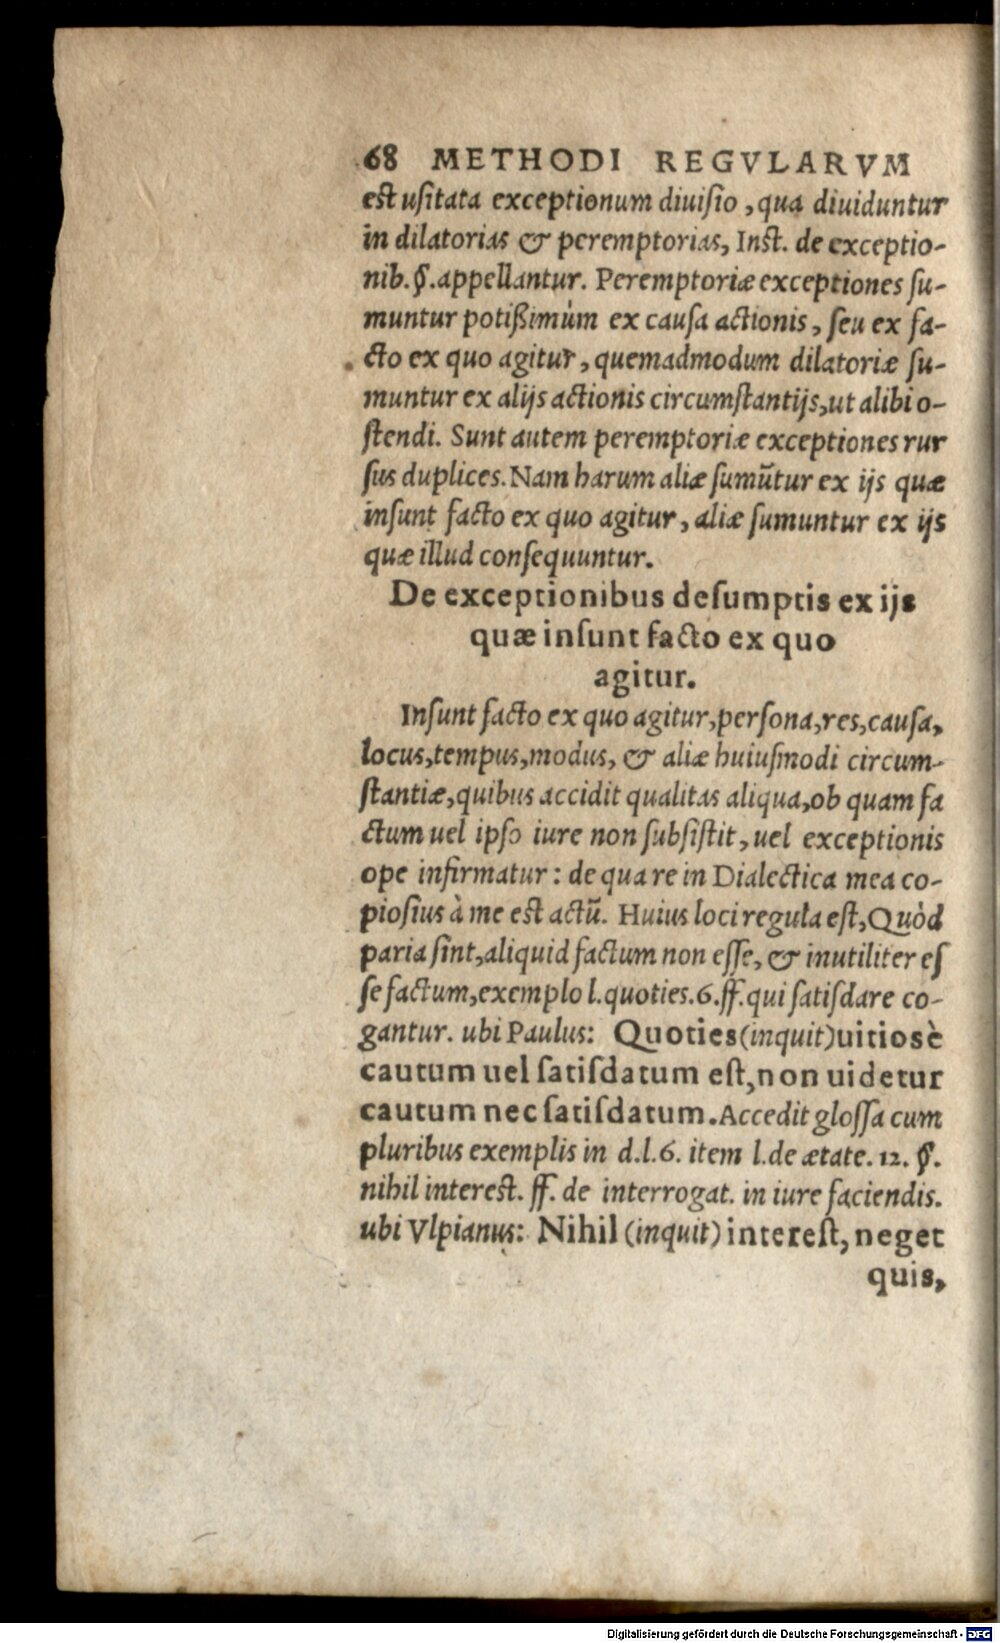 68 METHODI REGVLARVM
est uſitata exceptionum diuiſio, qua diuiduntur
in dilatorias & peremptorias, Inst. de exceptio-
nib. §. appellantur. Peremptoriæ exceptiones ſu-
muntur potißimùm ex cauſa actionis, ſeu ex fa-
cto ex quo agitur, quemadmodum dilatoriæ ſu-
muntur ex alijs actionis circumſtantijs, ut alibi o-
ſtendi. Sunt autem peremptoriæ exceptiones rur
ſus duplices. Nam harum aliæ ſumūtur ex ijs quæ
inſunt facto ex quo agitur, aliæ ſumuntur ex ijs
quæ illud conſequuntur.
De exceptionibus deſumptis ex ijs
quæ inſunt facto ex quo
agitur.
Inſunt facto ex quo agitur, perſona, res, cauſa,
locus, tempus, modus, & aliæ huiuſmodi circum-
ſtantiæ, quibus accidit qualitas aliqua, ob quam fa
ctum uel ipſo iure non ſubſiſtit, uel exceptionis
ope infirmatur: de qua re in Dialectica mea co-
pioſius à me est actū. Huius loci regula eſt, Quòd
paria ſint, aliquid factum non eſſe, & inutiliter eſ
ſe factum, exemplo l. quoties. 6. ff. qui ſatiſdare co-
gantur. ubi Paulus: Quoties (inquit) uitiosè
cautum uel ſatiſdatum eſt, non uidetur
cautum nec ſatiſdatum. Accedit gloſſa cum
pluribus exemplis in d. l. 6. item l. de ætate. 12. §.
nihil interest. ff. de interrogat. in iure faciendis.
ubi Vlpianus: Nihil (inquit) intereſt, neget
quis,
Digitalisierung gefördert durch die Deutsche Forschungsgemeinschaft - DFG